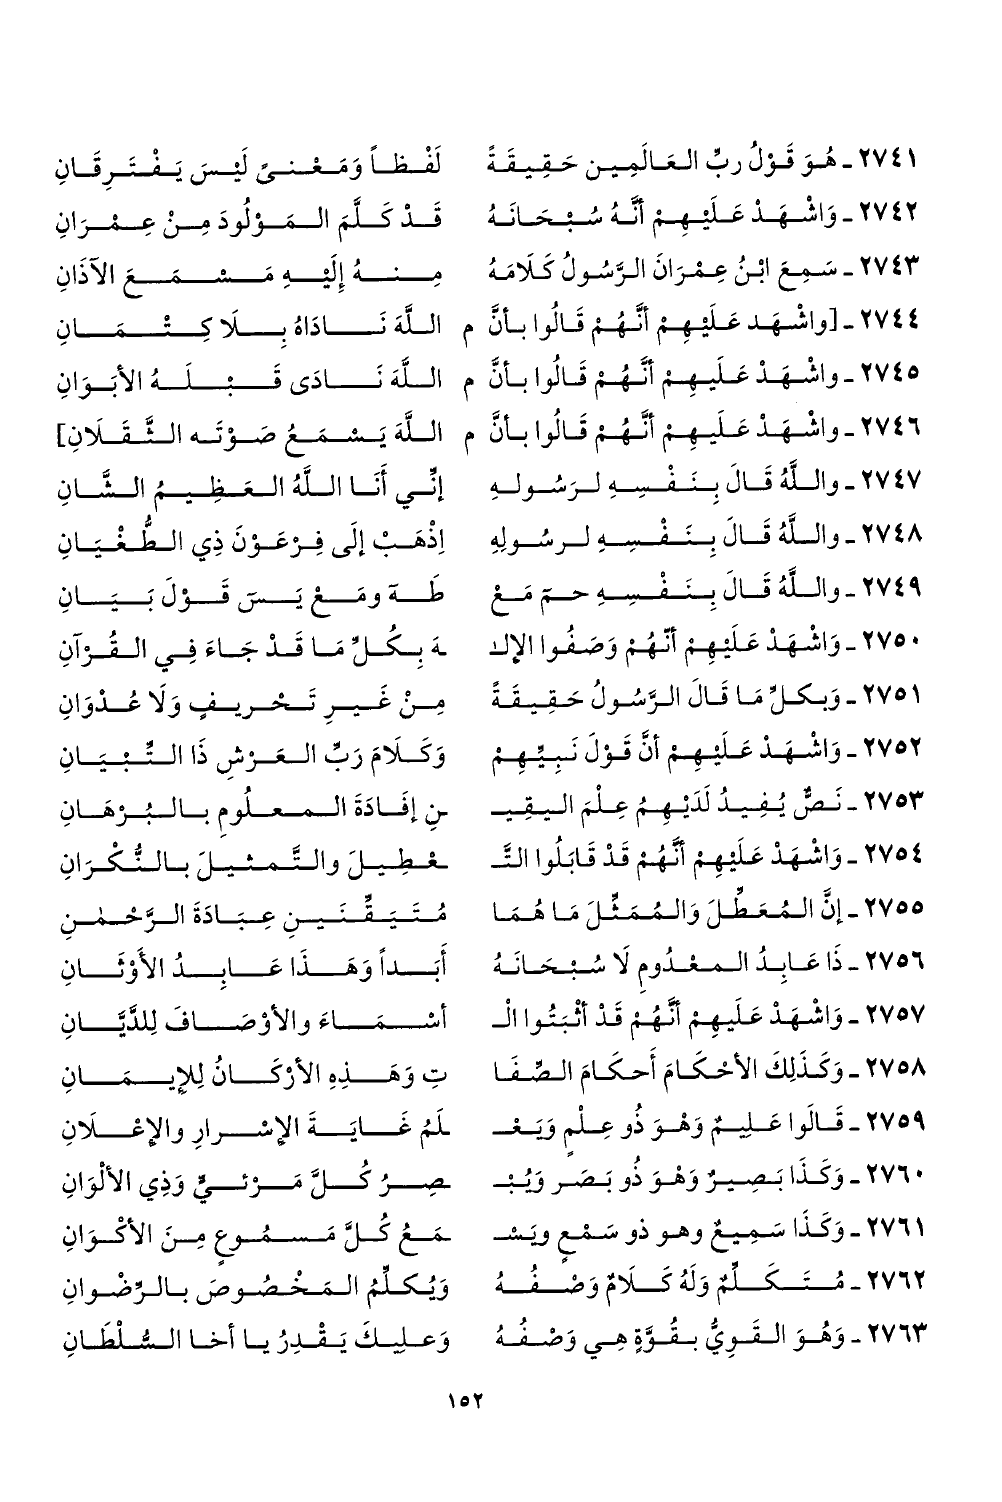 ٢٧٤١ - هُوَ قَوْلُ رَبِّ العَالَمِين حَقِيقَةً لَفْظاً وَمَعْنىً لَيْسَ يَفْتَرِقَانِ
٢٧٤٢ - وَاشْهَدْ عَلَيْهِمْ أنَّهُ سُبْحَانَهُ قَدْ كَلَّمَ المَوْلُودَ مِنْ عِمْرَانِ
٢٧٤٣ - سَمِعَ ابْنُ عِمْرَانَ الرَّسُولُ كَلَامَهُ مِنهُ إِلَيْهِ مَسْمَعَ الآذَانِ
٢٧٤٤ - [واشْهَد عَلَيْهِمْ أَنَّهُمْ قَالُوا بأنَّ م اللَّهَ نَادَاهُ بِلَا كِتْمَانِ
٢٧٤٥ - واشْهَدْ عَلَيهِمْ أَنَّهُمْ قَالُوا بأنَّ م اللَّهَ نَادَى قَبْلَهُ الأبَوَانِ
٢٧٤٦ - واشْهَدْ عَلَيهِمْ أَنَّهُمْ قَالُوا بأنَّ م اللَّهَ يَسْمَعُ صَوْتَه الثَّقَلَانِ]
٢٧٤٧ - واللَّهُ قَالَ بِنَفْسِهِ لرَسُولهِ إنِّي أَنَا اللَّهُ العَظِيمُ الشَّانِ
٢٧٤٨ - واللَّهُ قَالَ بِنَفْسِهِ لرسُولِهِ اِذْهَبْ إلَى فِرْعَوْنَ ذِي الطُّغْيَانِ
٢٧٤٩ - واللَّهُ قَالَ بِنَفْسِهِ حم مَعْ طَه ومَعْ يَس قَوْلَ بَيَانِ
٢٧٥٠ - وَاشْهَدْ عَلَيْهِمْ أنَّهُمْ وَصَفُوا الإلـ ـهَ بِكُلِّ مَا قَدْ جَاءَ فِي القُرْآنِ
٢٧٥١ - وَبِكلِّ مَا قَالَ الرَّسُولُ حَقِيقَةً مِنْ غَيرِ تَحْرِيفٍ وَلَا عُدْوَانِ
٢٧٥٢ - وَاشْهَدْ عَلَيْهِمْ أنَّ قَوْلَ نَبِيِّهِمْ وَكَلَامَ رَبِّ العَرْشِ ذَا التِّبْيَانِ
٢٧٥٣ - نَصٌّ يُفِيدُ لَدَيْهِمُ عِلْمَ اليَقِيـ ـنِ إفَادَةَ المعلُومِ بالبُرْهَانِ
٢٧٥٤ - وَاشْهَدْ عَلَيْهِمْ أنَّهُمْ قَدْ قَابَلُوا التَّـ ـعْطِيلَ والتَّمثيلَ بالنُّكْرَانِ
٢٧٥٥ - إنَّ المُعَطِّلَ وَالمُمَثِّلَ مَا هُمَا مُتَيَقِّنَينِ عِبَادَةَ الرَّحْمٰنِ
٢٧٥٦ - ذَا عَابِدُ المعْدُومِ لَا سُبْحَانَهُ أَبَداً وَهَذَا عَابِدُ الأَوْثَانِ
٢٧٥٧ - وَاشْهَدْ عَلَيهِمْ أنَّهُمْ قَدْ أثْبَتُوا الْـ أسْمَاءَ والأوْصَافَ لِلدَّيَّانِ
٢٧٥٨ - وَكَذَلِكَ الأحْكَامَ أَحكَامَ الصِّفَا تِ وَهَذِهِ الأرْكَانُ لِلإيمَانِ
٢٧٥٩ - قَالُوا عَلِيمٌ وَهْوَ ذُو عِلْمٍ وَيَعْـ ـلَمُ غَايَةَ الإسْرارِ والإعْلَانِ
٢٧٦٠ - وَكَذَا بَصِيرٌ وَهْوَ ذُو بَصَرٍ وَيُبْـ ـصِرُ كُلَّ مَرْئيٍّ وَذِي الألْوَانِ
٢٧٦١ - وَكَذَا سَمِيعٌ وهو ذو سَمْعٍ ويَسْـ ـمَعُ كُلَّ مَسمُوعٍ مِنَ الأكْوَانِ
٢٧٦٢ - مُتَكَلِّمٌ وَلَهُ كَلَامٌ وَصْفُهُ وَيُكلِّمُ المَخْصُوصَ بالرِّضْوانِ
٢٧٦٣ - وَهُوَ القَوِيُّ بقُوَّةٍ هِي وَصْفُهُ وَعليكَ يَقْدِرُ يا أخا السُّلْطَانِ
١٥٢